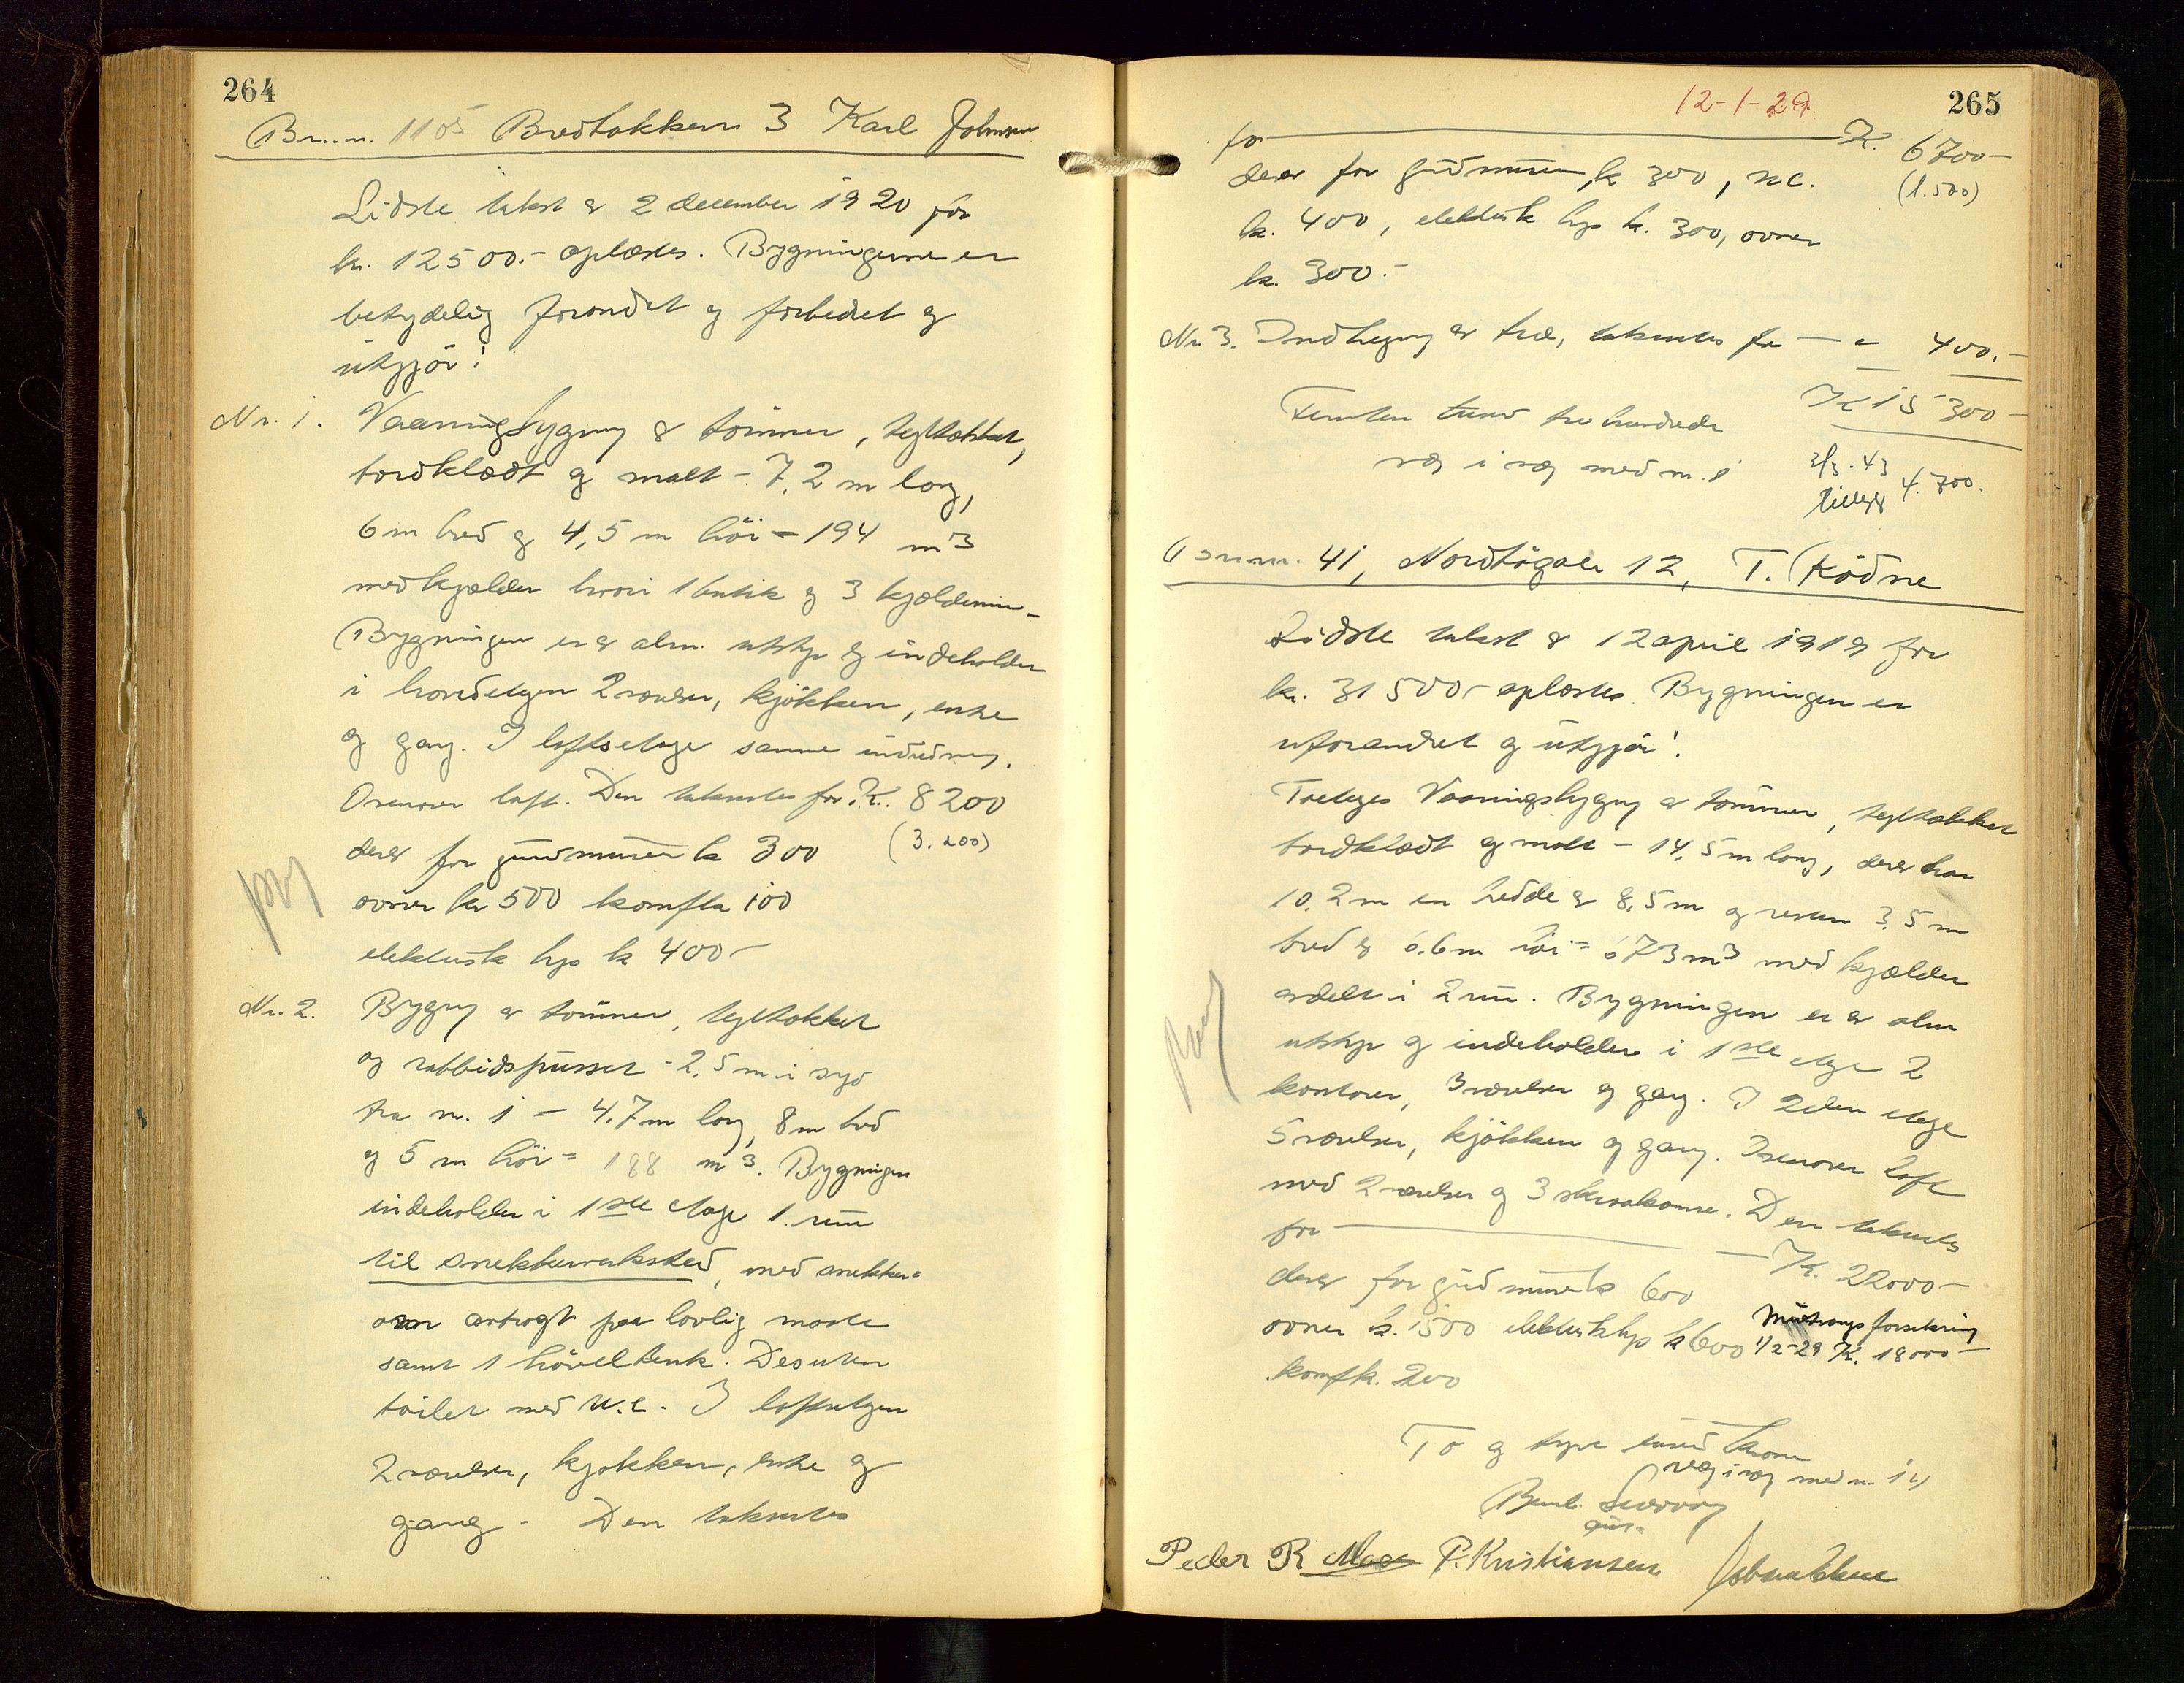 264
Br..n. 1105 Bredbakken 3 Karl Johnsen
Sidste takst er 2 december 1920 for
kr. 12500.- oplæstes. Bygningerne er
betydelig forandret og forbedret og
utgjør:
Nr. 1. Vaaningsbygning av tømmer, tegltækket,
bordklædt og malt - 7,2 m lang,
6 m bred og 4,5 m høi = 194 m3
med kjælder hvori 1 butik og 3 kjælderrum.
Bygningen er av alm. utstyr og indeholder
i hovedetagen 2 værelser, kjøkken, entre
og gang. I loftsetage samme indredning.
Ovenover loft. Den takseres for K. 8200
derav for grundmuren kr 300 (3.200)
ovner kr 500 komf kr 100
elektrisk lys kr 400-
Nr. 2. Bygning av tømmer, tegltækket
og rabbidspusset - 2,5 m i syd
fra nr. 1 - 4,7 m lang, 8 m bred
og 5 m høi = 188 m3. Bygningen
indeholder i 1ste etage 1. rum
til snekkerverksted, med snekker=
ovn anbragt paa lovlig maate
samt 1 høvelbenk. Desuten
toilet med w.c. I loftsetagen
2 værelser, kjøkken, entre og
gang. Den takseres
265
12-1-29.
for K. 6700-
derav for grundmuren kr 300, w.c. (1.500)
kr. 400, elektrisk lys kr. 300, ovner
kr. 300.-
Nr 3. Indhegning av træ, takseres for - " 400.-
K 15300-
Femten tusen tre hundrede
væg i væg med nr. 1
2/3. 43
tillegg 4.700.
41, Nordbøgate 12, T. Kødne
Sidste takst av 12 april 1919 for
kr. 31500- oplæstes. Bygningen er
uforandret og utgjør:
Toetages Vaaningsbygning av tømmer, tegltækket
bordklædt og malt - 14,5 m lang, derav har
10,2 m en bredde av 8,5 m og resten 3,5 m
bred og 6.6 m høi = 673 m3 med kjælder
avdelt i 2 rum. Bygningen er av alm
utstyr og indeholder i 1ste etage 2
kontorer, 3 værelser og gang. I 2den etage
5 værelser, kjøkken og gang. Ovenover loft
med 2 værelser og 3 skraakamre. Den takseres
for K. 22000-
derav for grundmur kr 600
ovner kr. 1500 elektrisk lys kr 600
komf kr. 200
forsikring
1/2-29 K. 18000-
To og tyve tusend kroner
væg i væg med nr 14
Peder R P. Kristiansen